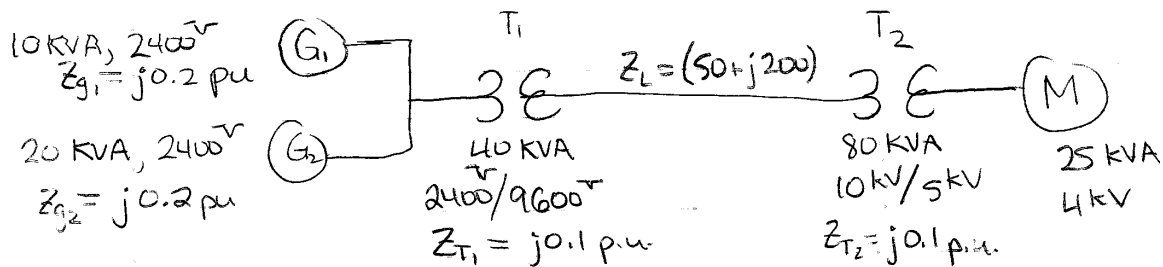 10 KVA, 2400 V
Zg1 = j0.2 pu
G1
20 KVA, 2400 V
Zg2 = j0.2 pu
G2
T1
40 KVA
2400 V/9600 V
ZT1 = j0.1 p.u.
ZL = (50+j200)
T2
80 KVA
10 kV/5 kV
ZT2 = j0.1 p.u.
M
25 kVA
4 kV